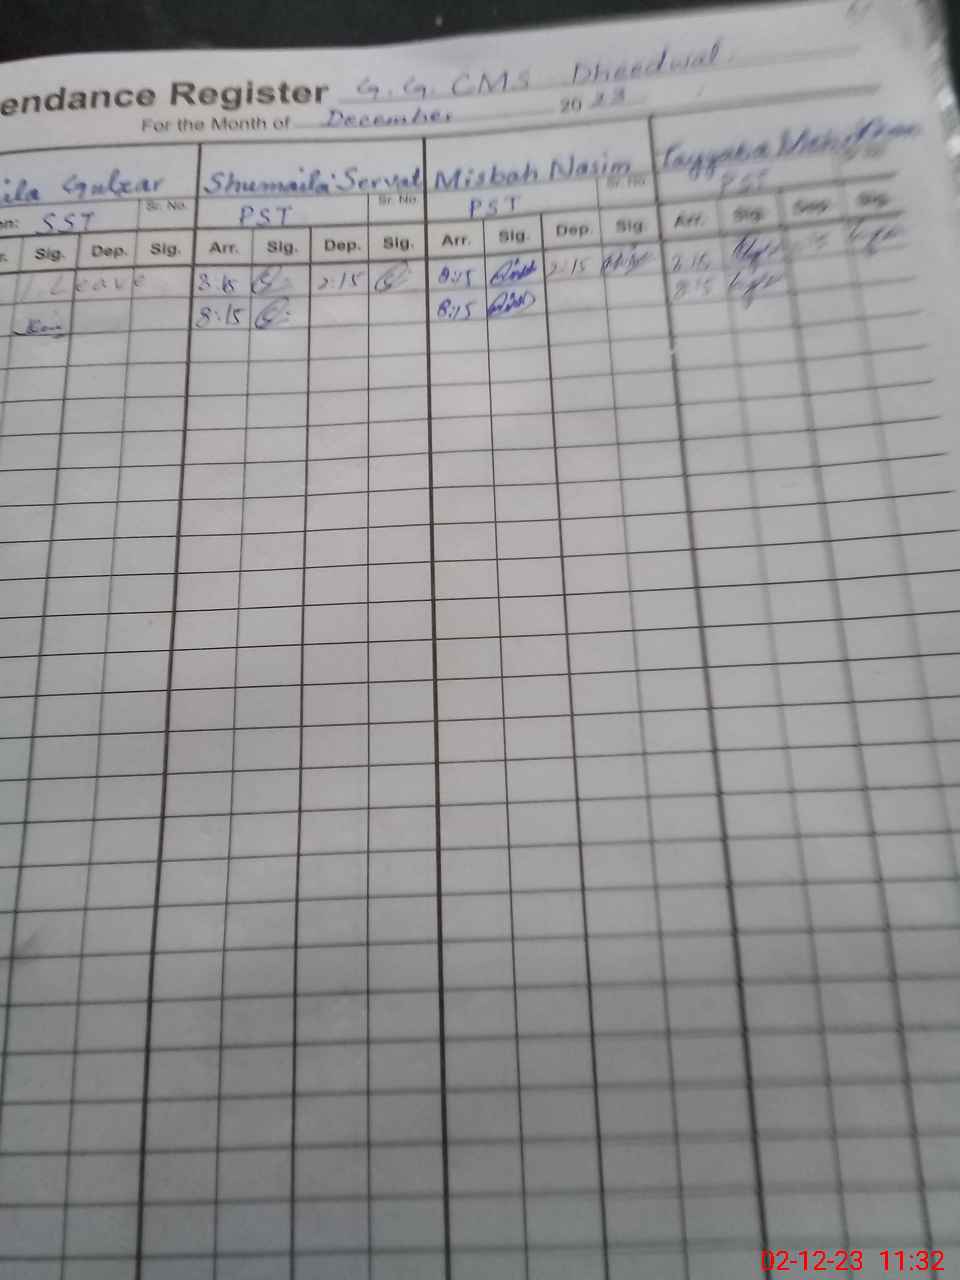 endance Register G.G. CMS Dheedwal.
For the Month of December 2023
ila Gulzar Shumaila Servat Misbah Nasim
n: SST Sr. No. PST Sr. No. PST Sr. No. PST
r. Sig. Dep. Sig. Arr. Sig. Dep. Sig. Arr. Sig. Dep. Sig Arr. Sig. Sig
Leave 8:15 2:15 8:15 2:15 8:15
8:15 8:15 8:15
02-12-23 11:32